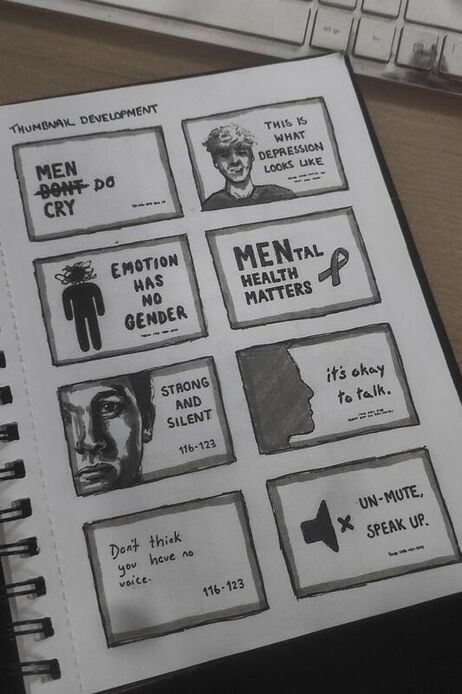 THUMBNAIL DEVELOPMENT
MEN
DONT DO
CRY
THIS IS
WHAT
DEPRESSION
LOOKS LIKE
EMOTION
HAS
NO
GENDER
MENTAL
HEALTH
MATTERS
STRONG
AND
SILENT
116-123
it's okay
to talk.
Don't think
you have no
voice.
116-123
UN-MUTE,
SPEAK UP.